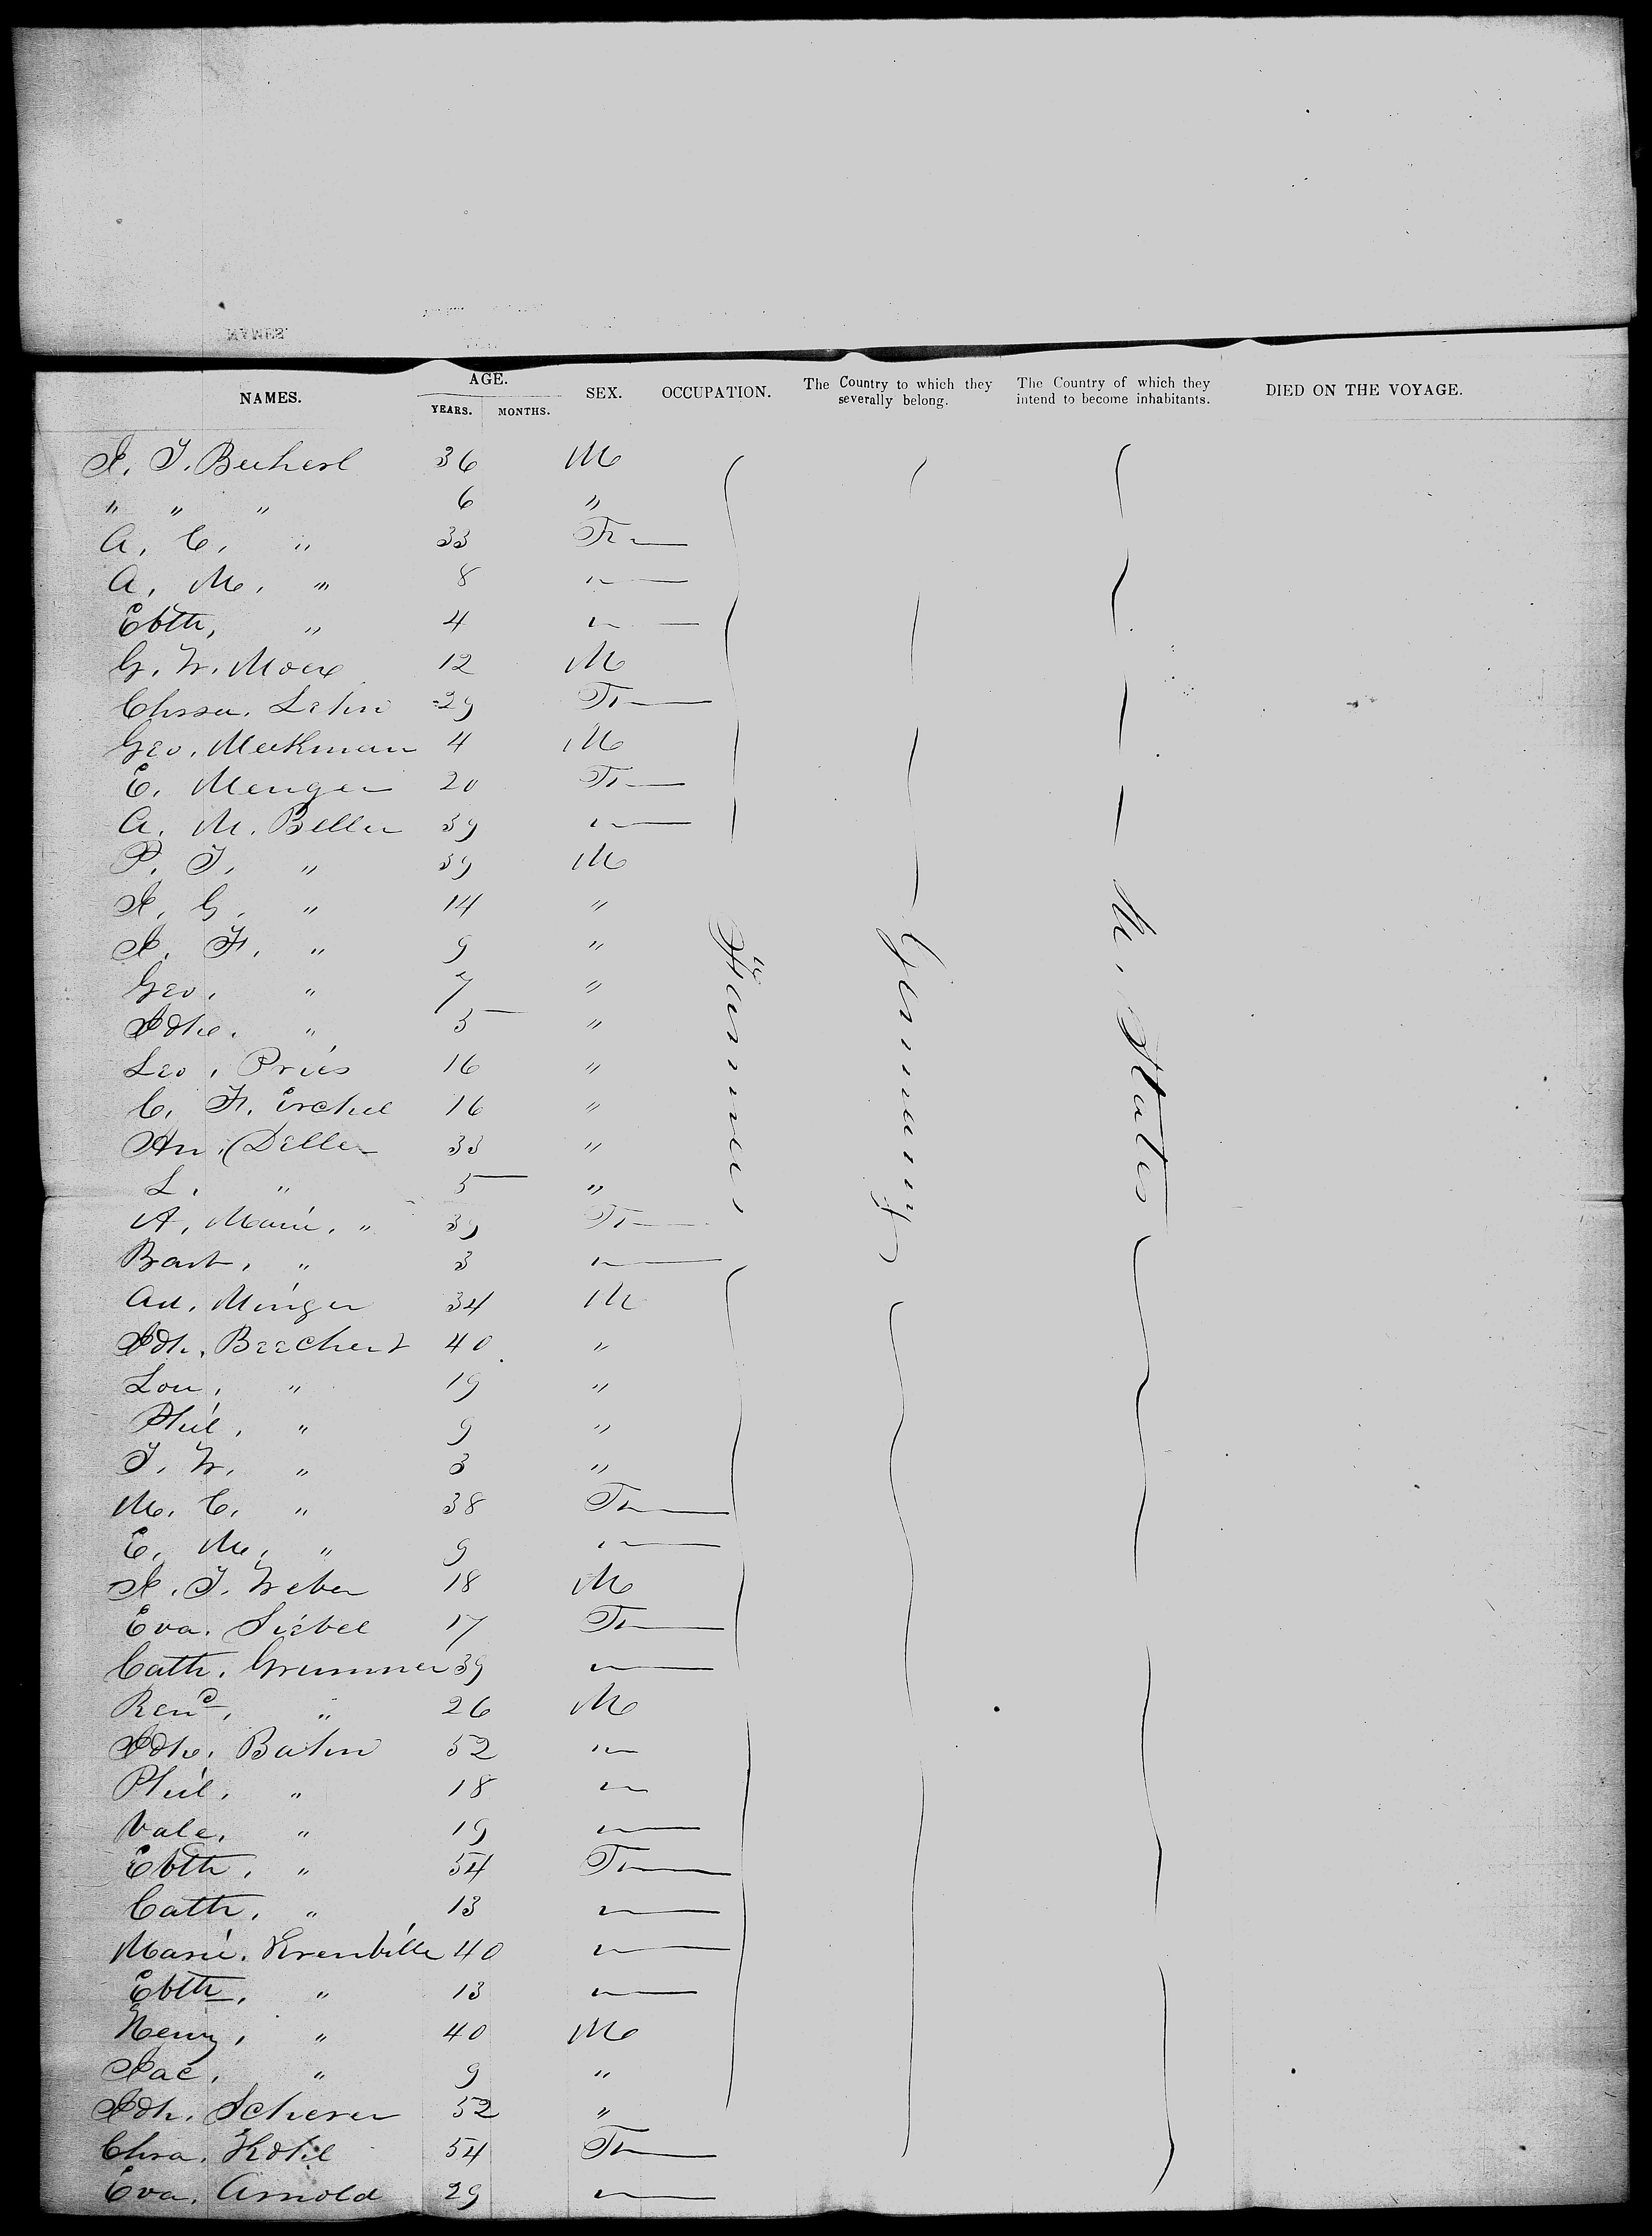 NAMES.
AGE.
YEARS. MONTHS.
SEX.
OCCUPATION.
The Country to which they severally belong.
The Country of which they intend to become inhabitants.
DIED ON THE VOYAGE.
J. J. 36 M
" " " 6 "
A. C. " 33 F
A. M. " 8 "
Ebth. " 4 "
G. W. 12 M
29 F
Geo. 4 M
E. Menger 20 F
A. M. Beller 39 "
P. J. " 39 M
J. G. " 14 "
J. F. " 9 "
Geo. " 7 "
Joh. " 5 "
Leo. Pries 16 "
C. F. 16 "
An. Deller 33 "
L. " 5 "
A. Marie. " 39 F
Barb. " 3 "
Ad. Minger 34 M
Joh. Beechert 40 "
Lou. " 19 "
Phil. " 9 "
J. W. " 3 "
M. C. " 38 F
E. M. " 9 "
J. J. Weber 18 M
Eva. Siebel 17 F
Cath. Grummer 39 "
" 26 M
Joh. Bahn 52 "
Phil. " 18 "
Vale. " 19 "
Ebth. " 54 F
Cath. " 13 "
Marie. Krenbille 40 "
Ebth. " 13 "
Henry. " 40 M
Jac. " 9 "
Joh. Scherer 52 "
Chra. Kohl 54 F
Eva. Arnold 29 "
Farmer
Germany
U. States